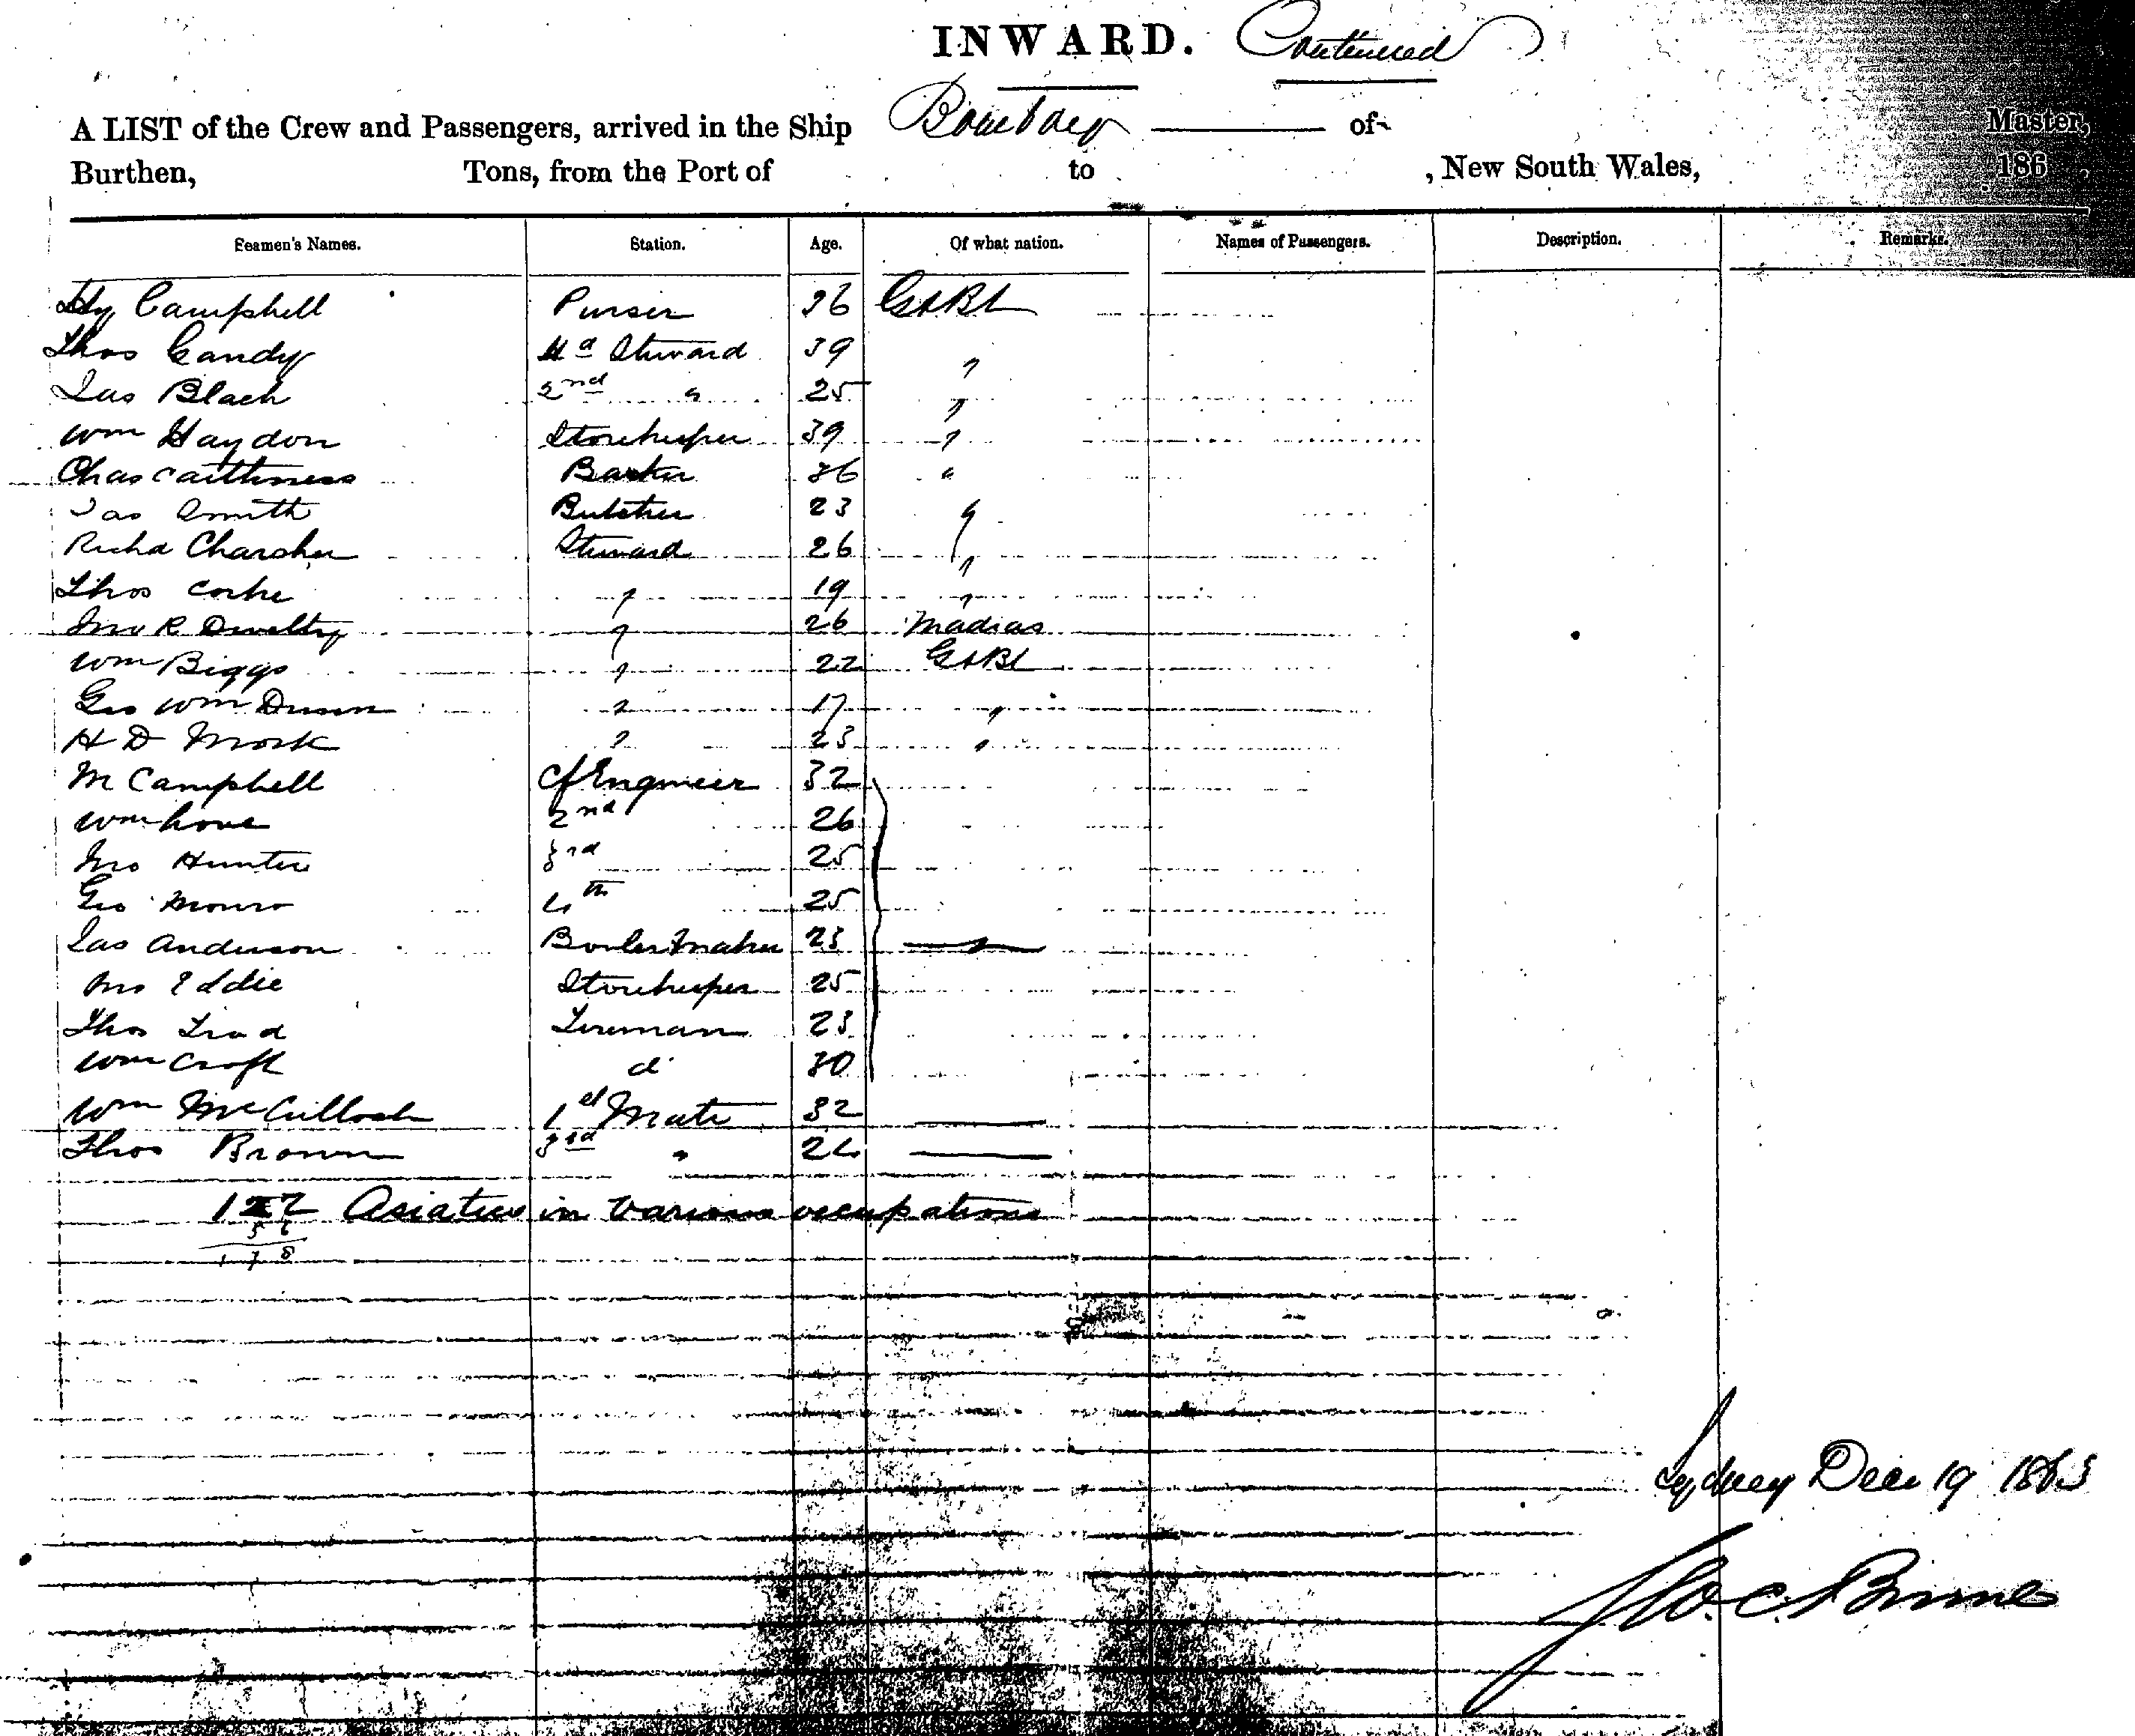 INWARD. Continued
A LIST of the Crew and Passengers, arrived in the Ship Bombay of Master,
Burthen, Tons, from the Port of to , New South Wales, 186 .
Seamen's Names. Station. Age. Of what nation. Names of Passengers. Description. Remarks.
Hy Campbell Purser 36 Gt Bt
Thos Candy Hd Steward 39 "
Jas Black 2nd " 25 "
Wm Haydon Storekeeper 39 "
Chas Caithness 36 "
Jas Smith Butcher 23 "
Richd Steward 26 "
Thos Corke " 19 "
Jno R " 26 Madras
Wm Biggs " 22 Gt Bt
Geo Wm " 17 "
H D " 23 "
M Campbell Cf Engineer 32
Wm Love 2nd 26
Jno Hunter 3rd 25
Geo Monro 4th 25
Jas Anderson Boiler Maker 23 "
Jno Eddie Storekeeper 25
Thos Fireman 23
Wm Croft do 30
Wm McCulloch 1st Mate 32
Thos Brown 3rd " 24
Asiatics in various occupations
5 6
1 7 8
Sydney Dec 19 1863